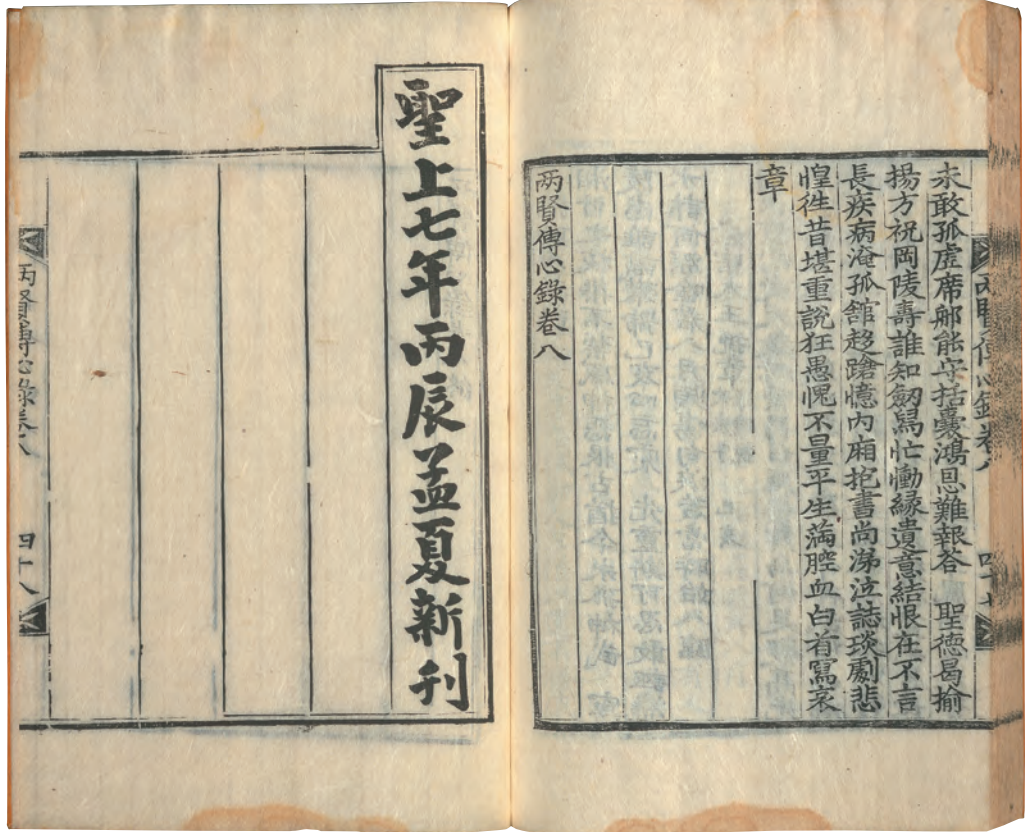 两賢傳心錄卷八 四十七
未敢孤虛席郍能守括囊鴻恩難報答 聖德曷揄
揚方祝岡陵壽誰知劒舃忙慟緣遺意結恨在不言
長疾病淹孤舘趍蹌憶內廂抱書尚涕泣誌琰劇悲
惶徃昔堪重說狂愚愧不量平生滿腔血白首寫哀
章
两賢傳心錄卷八
聖上七年丙辰孟夏新刊
两賢傳心錄卷八 四十八